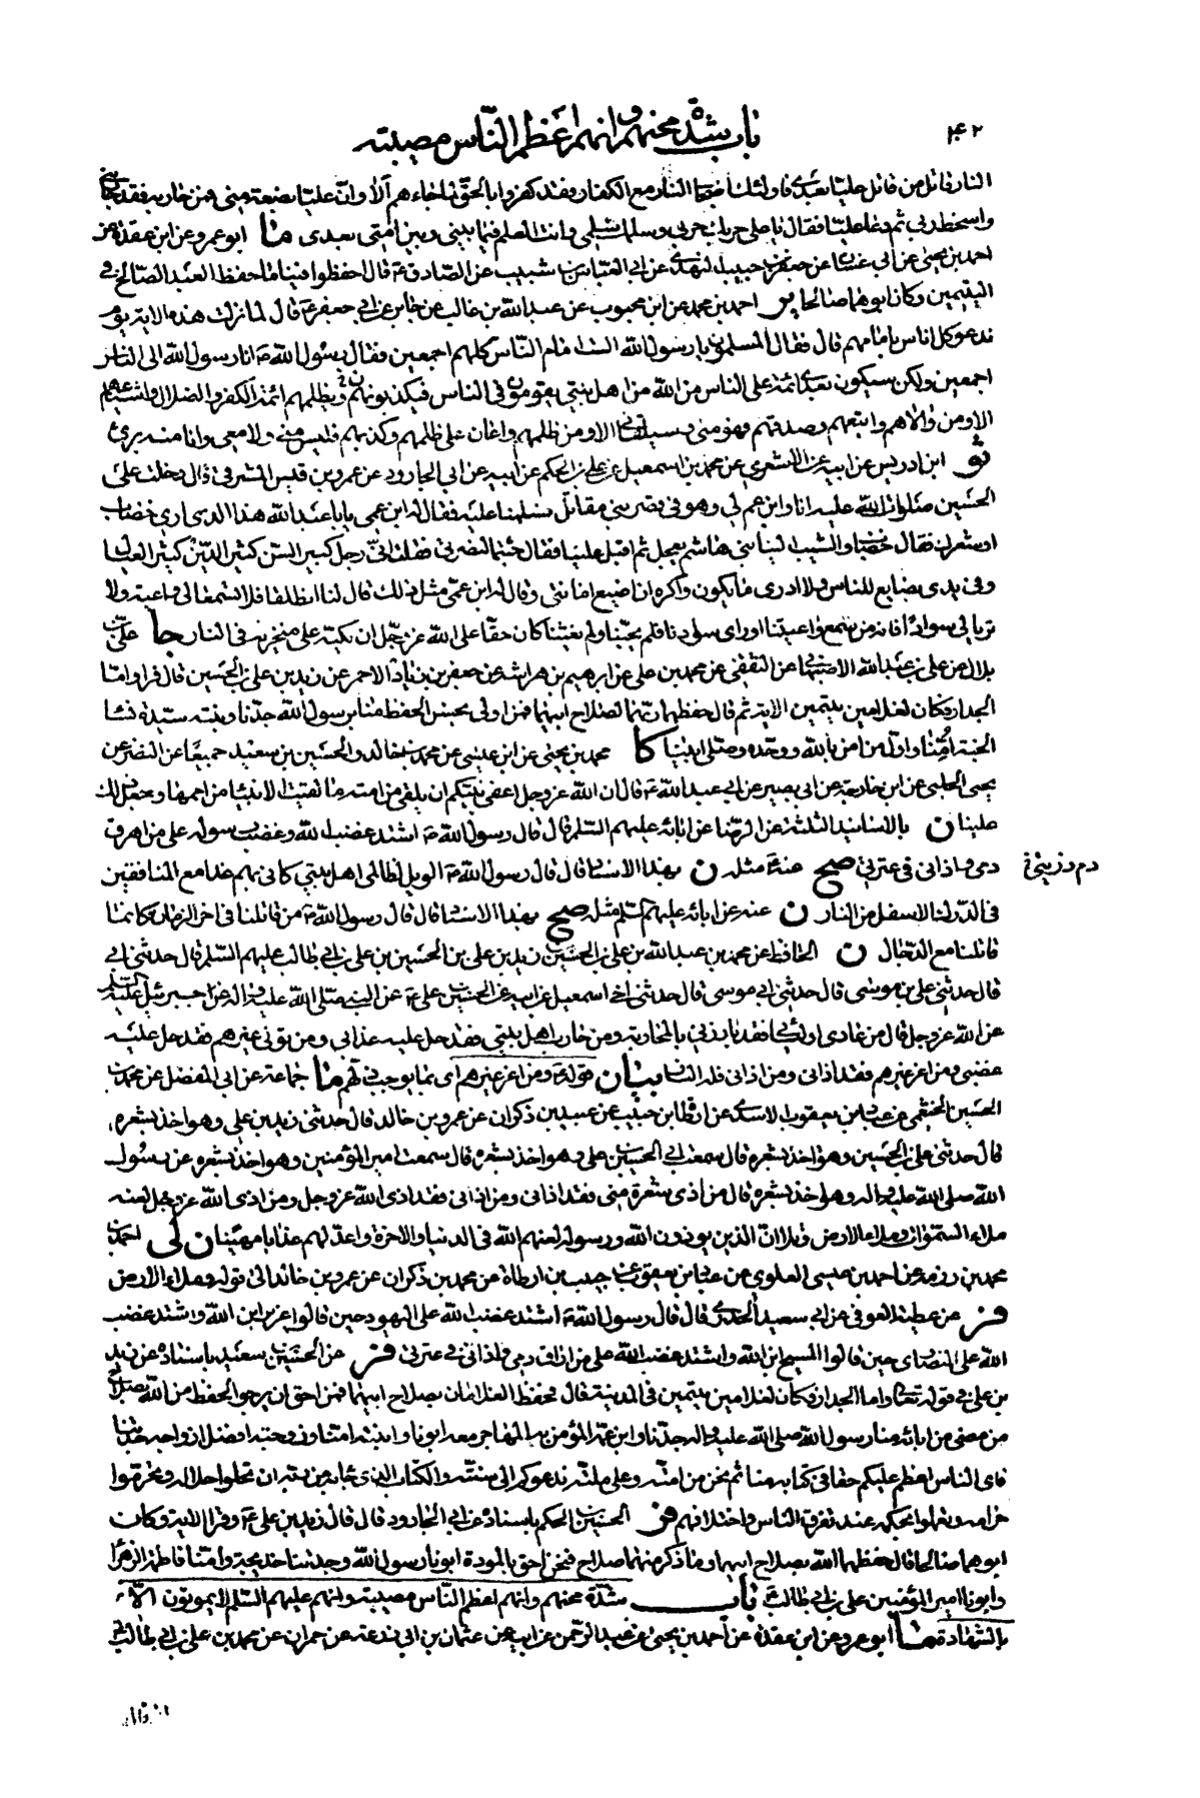 باب شدة محنهم وانهم اعظم الناس مصيبة
النار قاتل من قاتل عليا بعدي فاولئك اصحاب النار مع الكفار وقد كفروا بالحق لما جاءهم الا وان عليا بضعة مني فمن حاربه فقد حاربني
واسخط ربي ثم دعا عليا فقال يا علي حربك حربي وسلمك سلمي وانت العلم فيما بيني وبين امتي بعدي ما ابو عمرو عن ابن عقدة عن
احمد بن يحيى عن ابي غسان عن جعفر بن حبيب النهدي عن ابي العباس بن شبيب عن الصادق ع قال احفظوا فينا ما حفظ العبد الصالح في
اليتيمين وكان ابوهما صالحا ير احمد بن محمد عن ابن محبوب عن عبد الله بن غالب عن جابر عن ابي جعفر ع قال لما نزلت هذه الاية يوم
ندعو كل اناس بامامهم قال فقال المسلمون يا رسول الله الست امام الناس كلهم اجمعين فقال رسول الله ص انا رسول الله الى الناس
اجمعين ولكن سيكون بعدي ائمة على الناس من الله من اهل بيتي يقومون في الناس فيكذبونهم ويظلمهم ائمة الكفر والضلال واشياعهم
الا ومن والاهم واتبعهم وصدقهم فهو مني وسيلقاني الا ومن ظلمهم واعان على ظلمهم وكذبهم فليس مني ولا معي وانا منه بريء
ثو ابن ادريس عن ابيه عن الاشعري عن محمد بن اسمعيل عن علي بن الحكم عن ابيه عن ابي الجارود عن عمرو بن قيس المشرقي قال دخلت على
الحسين صلوات الله عليه انا وابن عم لي وهو في قصر بني مقاتل فسلمنا عليه فقال له ابن عمي يا با عبد الله هذا الذي ارى خضاب
او شعرك فقال خضاب والشيب الينا بني هاشم يعجل ثم اقبل علينا فقال جئتما لنصرتي فقلت اني رجل كبير السن كثير الدين كثير العيال
وفي يدي بضايع للناس ولا ادري ما يكون واكره ان اضيع امانتي وقال له ابن عمي مثل ذلك قال لنا انطلقا فلا تسمعا لي واعية ولا
تريا لي سوادا فانه من سمع واعيتنا او راى سوادنا فلم يجبنا ولم يغثنا كان حقا على الله عز وجل ان يكبه على منخريه في النار جا علي بن
بلال عن علي بن عبد الله الاصبهاني عن الثقفي عن محمد بن علي عن ابرهيم بن هراسة عن جعفر بن زياد الاحمر عن زيد بن علي بن الحسين قال قرأ واما
الجدار فكان لغلامين يتيمين الاية ثم قال حفظهما ربهما لصلاح ابيهما فمن اولى بحسن الحفظ منا رسول الله جدنا وبنته سيدة نساء
الجنة امنا واول من امن بالله ووحده وصلى ابينا كا محمد بن يحيى عن ابن عيسى عن محمد بن خالد والحسين بن سعيد جميعا عن النضر عن
يحيى الحلبي عن ابن خارجة عن ابي بصير عن ابي عبد الله ع قال ان الله عز وجل اعفى نبيكم ان يلقى من امته ما لقيت الانبياء من اممها وجعل ذلك
علينا ن بالاسانيد الثلثة عن الرضا عن ابائه عليهم السلم قال قال رسول الله ص اشتد غضب الله وغضب رسوله على من اهرق
دمي واذاني في عترتي صح عنه ع مثله ن بهذا الاسناد قال قال رسول الله ص الويل لظالمي اهل بيتي كاني بهم غدا مع المنافقين
دم ذريتي خ
في الدرك الاسفل من النار ن عنه عن ابائه عليهم السلم مثله صح بهذا الاسناد قال قال رسول الله ص من قاتلنا في اخر الزمان فكانما
قاتلنا مع الدجال ن الحافظ عن محمد بن عبد الله بن علي بن الحسين بن زيد بن علي بن الحسين بن علي بن ابي طالب عليهم السلم قال حدثني ابي
قال حدثني علي بن موسى قال حدثني ابي موسى قال حدثني اخي اسمعيل عن ابيه عن الحسين بن علي ع عن النبي صلى الله عليه واله عن جبرئيل عليه السلم
عن الله عز وجل قال من عادى اوليائي فقد بارزني بالمحاربة ومن حارب اهل بيتي فقد حل عليه عذابي ومن تولى غيرهم فقد حل عليه
غضبي ومن اعز غيرهم فقد اذاني ومن اذاني فله النار بيان قوله ومن اعز غيرهم اي بما يوجب ذلهم ما جماعة عن ابي المفضل عن محمد بن
الحسين الخثعمي عن عباد بن يعقوب الاسدي عن ارطاة بن حبيب عن عبيد بن ذكران عن عمرو بن خالد قال حدثني زيد بن علي وهو اخذ بشعره
قال حدثني علي بن الحسين وهو اخذ بشعره قال سمعت ابي الحسين بن علي وهو اخذ بشعره قال سمعت امير المؤمنين وهو اخذ بشعره عن رسول
الله صلى الله عليه واله وهو اخذ بشعره قال من اذى شعرة مني فقد اذاني ومن اذاني فقد اذى الله عز وجل ومن اذى الله عز وجل لعنه
ملاء السموات وملاء الارض وتلا ان الذين يؤذون الله ورسوله لعنهم الله في الدنيا والاخرة واعد لهم عذابا مهينا ن لى احمد بن
محمد بن رزمة عن احمد بن عيسى العلوي عن عباد بن يعقوب عن حبيب بن ارطاة عن محمد بن ذكران عن عمرو بن خالد الى قوله وملاء الارض
فر عن عطية العوفي عن ابي سعيد الخدري قال قال رسول الله ص اشتد غضب الله على اليهود حين قالوا عزير ابن الله واشتد غضب
الله على النصارى حين قالوا المسيح ابن الله واشتد غضب الله على من اراق دمي واذاني في عترتي فر عن الحسين بن سعيد باسناده عن زيد
بن علي في قوله تعالى واما الجدار فكان لغلامين يتيمين في المدينة قال فحفظ الغلامان بصلاح ابيهما فمن احق ان يرجو الحفظ من الله بصلاح
من مضى من ابائه منا رسول الله صلى الله عليه واله جدنا وابن عمه المؤمن به المهاجر معه ابونا وابنته امنا وزوجته افضل ازواجه جدتنا
فاي الناس اعظم عليكم حقا في كتابه منا ثم نحن من امته وعلى ملته ندعوكم الى سنته والكتاب الذي جاء به من ربه ان تحلوا حلاله وتحرموا
حرامه وتعملوا بحكمه عند تفرق الناس واختلافهم فر الحسين بن الحكم باسناده عن ابي الجارود قال قال زيد بن علي ع وقرأ الاية وكان
ابوهما صالحا قال حفظهما الله بصلاح ابيهما وما ذكر منهما صلاح فنحن احق بالمودة ابونا رسول الله وجدتنا خديجة وامنا فاطمة الزهراء
وابونا امير المؤمنين علي بن ابي طالب ع باب شدة محنهم وانهم اعظم الناس مصيبة وانهم عليهم السلم لا يموتون الا
بالشهادة ما ابو عمرو عن ابن عقدة عن احمد بن يحيى عن عبد الرحمن عن ابيه عن عثمان بن ابي زرعة عن حمران عن محمد بن علي بن ابي طالب